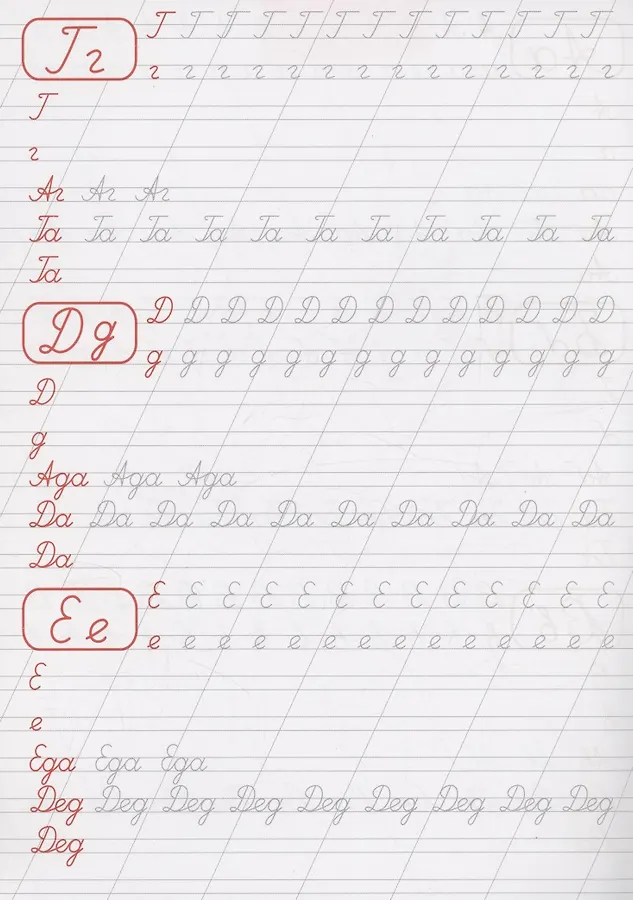 Г г
Г Г Г Г Г Г Г Г Г Г Г Г Г
г г г г г г г г г г г г г г
Г
г
Аг Аг Аг
Га Га Га Га Га Га Га Га Га Га Га
Га
Д д
Д Д Д Д Д Д Д Д Д Д Д Д Д
д д д д д д д д д д д д д д
Д
д
Ада Ада Ада
Да Да Да Да Да Да Да Да Да Да
Да
Е е
Е Е Е Е Е Е Е Е Е Е Е Е Е
е е е е е е е е е е е е е е
Е
е
Еда Еда Еда
Дед Дед Дед Дед Дед Дед Дед Дед Дед
Дед